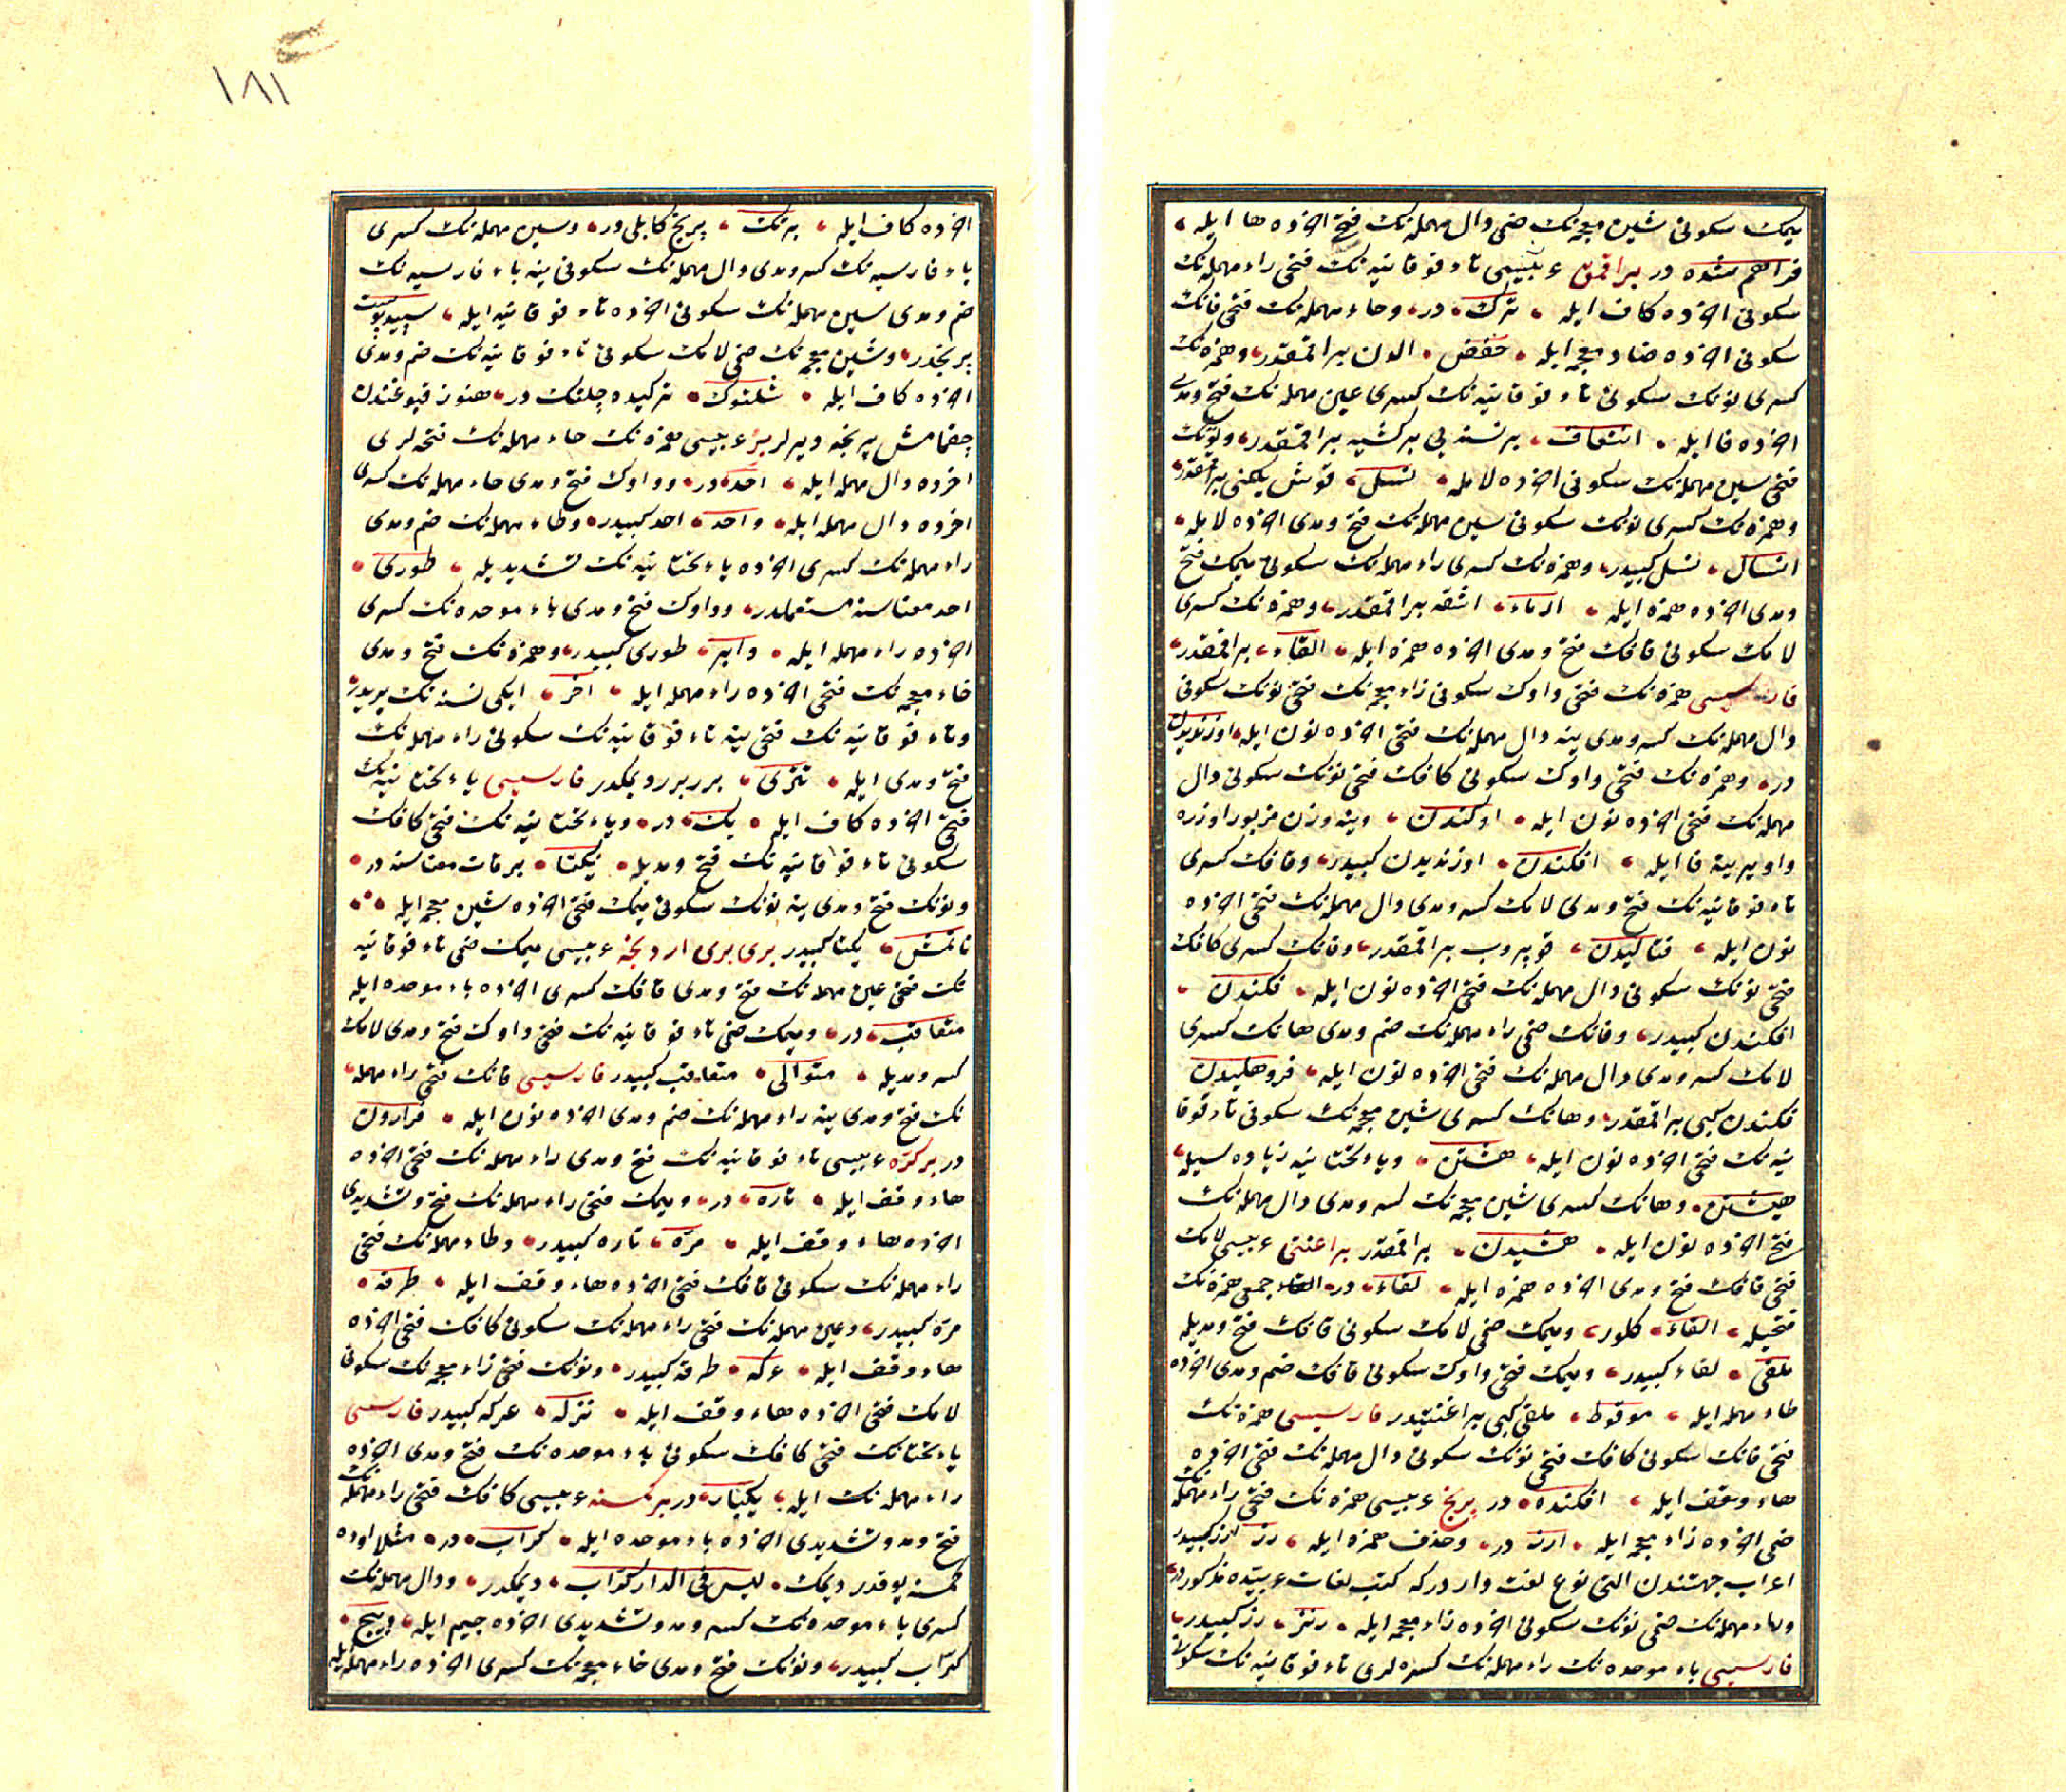 میمك سكونی شین معجمه‌نك ضمی دال مهمله‌نك فتحی اخرده ها ایله
فراهم شده در براقمق عربیسی تاء فوقانیه‌نك فتحی راء مهمله‌نك
سكونی اخرده كاف ایله ترك در وحاء مهمله‌نك فتحی فانك
سكونی اخرده ضاد معجمه ایله حفض الدن براقمقدر وهمزه‌نك
كسری نونك سكونی تاء فوقانیه‌نك كسری عین مهمله‌نك فتح ومدی
اخرده فا ایله انتعاف بر نسنه‌یی بر كشیه براقمقدر ونونك
فتحی سین مهمله‌نك سكونی اخرده لامله نسل قوش یلكنی براقمقدر
وهمزه‌نك كسری نونك سكونی سین مهمله‌نك فتح ومدی اخرده لامله
انسال نسل كبیدر وهمزه‌نك كسری راء مهمله‌نك سكونی میمك فتح
ومدی اخرده همزه ایله ارماء اشقه براقمقدر وهمزه‌نك كسری
لامك سكونی قافك فتح ومدی اخرده همزه ایله القاء براقمقدر
فارسیسی همزه‌نك فتحی واوك سكونی زاء معجمه‌نك فتحی نونك سكونی
دال مهمله‌نك كسر ومدی ینه دال مهمله‌نك فتحی اخرده نون ایله اوزندیدن
در وهمزه‌نك فتحی واوك سكونی كافك فتحی نونك سكونی دال
مهمله‌نك فتحی اخرده نون ایله اوكندن وینه وزن مزبور اوزره
واو یرینه فا ایله افكندن اوزندیدن كبیدر وفانك كسری
تاء فوقانیه‌نك فتح ومدی لامك كسر ومدی دال مهمله‌نك فتحی اخرده
نون ایله فتالیدن قوپروب براقمقدر وفانك كسری كافك
فتحی نونك سكونی دال مهمله‌نك فتحی اخرده نون ایله فكندن
افكندن كبیدر وفانك ضمی راء مهمله‌نك ضم ومدی هانك كسری
لامك كسر ومدی دال مهمله‌نك فتحی اخرده نون ایله فروهلیدن
فكندن كبی براقمقدر وهانك كسری شین معجمه‌نك سكونی تاء فوقا
نیه‌نك فتحی اخرده نون ایله هشتن ویاء تحتانیه زیاده‌سیله
هیشتن وهانك كسری شین معجمه‌نك كسر ومدی دال مهمله‌نك
فتح اخرده نون ایله هشیدن براقمقدر براغنتی عربیسی لامك
فتحی قافك فتح ومدی اخرده همزه ایله لقاء در القاء جمعی همزه‌نك
فتحیله القاء كلور ومیمك ضمی لامك سكونی قافك فتح ومدیله
ملقی لقاء كبیدر ومیمك فتحی واوك سكونی قافك ضم ومدی اخرده
طاء مهمله ایله موقوط ملقی كبی براغنتیدر فارسیسی همزه‌نك
فتحی فانك سكونی كافك فتحی نونك سكونی دال مهمله‌نك فتحی اخرده
هاء وقف ایله افكنده در برنج عربیسی همزه‌نك فتحی راء مهمله‌نك
ضمی اخرده زاء معجمه ایله ارز در وحذف همزه ایله رز ارز كبیدر
اعراب جهتندن التی نوع لغت وار دركه كتب لغات عربیه‌ده مذكوردر
وراء مهمله‌نك ضمی نونك سكونی اخرده زاء معجمه ایله رنز رز كبیدر
فارسیسی باء موحده‌نك راء مهمله‌نك كسره‌لری تاء فوقانیه‌نك سكونی
١٨١
اخرده كاف ایله برتك برنج كابلی در وسین مهمله‌نك كسری
باء فارسیه‌نك كسر ومدی دال مهمله‌نك سكونی ینه باء فارسیه‌نك
ضم ومدی سین مهمله‌نك سكونی اخرده تاء فوقانیه ایله سپیدپوست
برنجدر وشین معجمه‌نك ضمی لامك سكونی تاء فوقانیه‌نك ضم ومدی
اخرده كاف ایله شلتوك تركیده چلتك در هنوز قبوغندن
چقمامش پرنجه دیرلر بر عربیسی همزه‌نك حاء مهمله‌نك فتحه‌لری
اخرده دال مهمله ایله احد در وواوك فتح ومدی حاء مهمله‌نك كسری
اخرده دال مهمله ایله واحد احد كبیدر وطاء مهمله‌نك ضم ومدی
راء مهمله‌نك كسری اخرده یاء تحتانیه‌نك تشدیدیله طوری
احد معناسنه مستعملدر وواوك فتح ومدی باء موحده‌نك كسری
اخرده راء مهمله ایله وابر طوری كبیدر وهمزه‌نك فتح ومدی
خاء معجمه‌نك فتحی اخرده راء مهمله ایله اخر ایكی نسنه‌نك بریدر
وتاء فوقانیه‌نك فتحی ینه تاء فوقانیه‌نك سكونی راء مهمله‌نك
فتح ومدی ایله تتری برر برر دیمكدر فارسیسی یاء تحتانیه‌نك
فتحی اخرده كاف ایله یك در ویاء تحتانیه‌نك فتحی كافك
سكونی تاء فوقانیه‌نك فتح ومدیله یكتا برقات معناسنه در
ونونك فتح ومدی ینه نونك سكونی میمك فتحی اخرده شین معجمه ایله
نانمش یكتا كبیدر بری بری اردنجه عربیسی میمك ضمی تاء فوقانیه
نك فتحی عین مهمله‌نك فتح ومدی قافك كسری اخرده باء موحده ایله
متعاقب در ومیمك ضمی تاء فوقانیه‌نك فتحی واوك فتح ومدی لامك
كسر ومدیله متوالی متعاقب كبیدر فارسیسی فانك فتحی راء مهمله
نك فتح ومدی ینه راء مهمله‌نك ضم ومدی اخرده نون ایله فرارون
در بر كره عربیسی تاء فوقانیه‌نك فتح ومدی راء مهمله‌نك فتحی اخرده
هاء وقف ایله تاره در ومیمك فتحی راء مهمله‌نك فتح وتشدیدی
اخرده هاء وقف ایله مرّه تاره كبیدر وطاء مهمله‌نك فتحی
راء مهمله‌نك سكونی قافك فتحی اخرده هاء وقف ایله طرقه
مرّه كبیدر وعین مهمله‌نك فتحی راء مهمله‌نك سكونی كافك فتحی اخرده
هاء وقف ایله عركه طرقه كبیدر ونونك فتحی زاء معجمه‌نك سكونی
لامك فتحی اخرده هاء وقف ایله نزله عركه كبیدر فارسیسی
یاء تحتانیه‌نك فتحی كافك سكونی باء موحده‌نك فتح ومدی اخرده
راء مهمله‌نك ایله یكبار در بر كمسنه عربیسی كافك فتحی راء مهمله‌نك
فتح ومد وتشدیدی اخرده باء موحده ایله كرّاب در مثلا اوده
كمسنه یوقدر دیمك لیس فی الدار كرّاب دیمكدر ودال مهمله‌نك
كسری باء موحده‌نك كسر ومد وتشدیدی اخرده جیم ایله دبّیج
كرّاب كبیدر ونونك فتح ومدی خاء معجمه‌نك كسری اخرده راء مهمله ایله